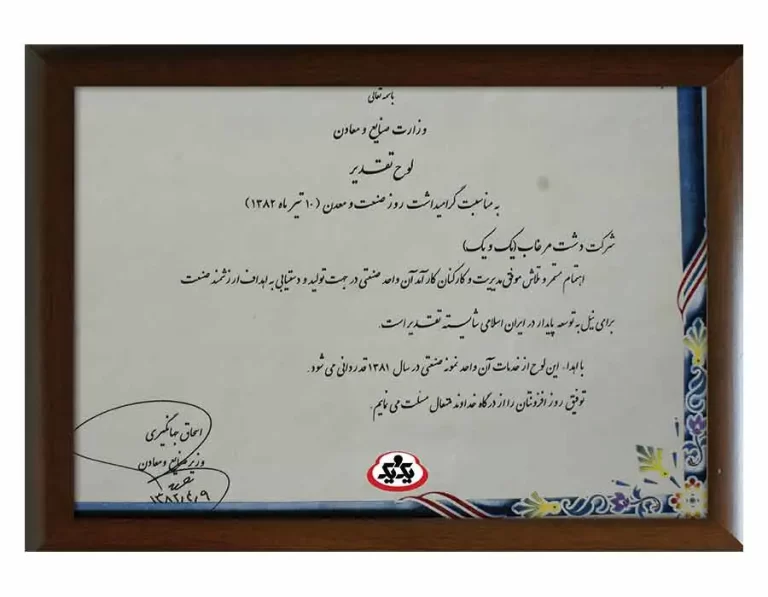 باسمه تعالی
وزارت صنایع و معادن
لوح تقدیر
به مناسبت گرامیداشت روز صنعت و معدن (۱۰ تیر ماه ۱۳۸۲)
شرکت دشت مرغاب (یک و یک)
اهتمام مستمر و تلاش موفق مدیریت و کارکنان کارآمد آن واحد صنعتی در جهت تولید و دستیابی به اهداف ارزشمند صنعت
برای نیل به توسعه پایدار در ایران اسلامی شایسته تقدیر است.
با اهداء این لوح از خدمات آن واحد نمونه صنعتی در سال ۱۳۸۱ قدردانی می شود.
توفیق روز افزونتان را از درگاه خداوند متعال مسئلت می نمایم.
اسحاق جهانگیری
وزیر صنایع و معادن
۱۳۸۲/۴/۹
یک یک